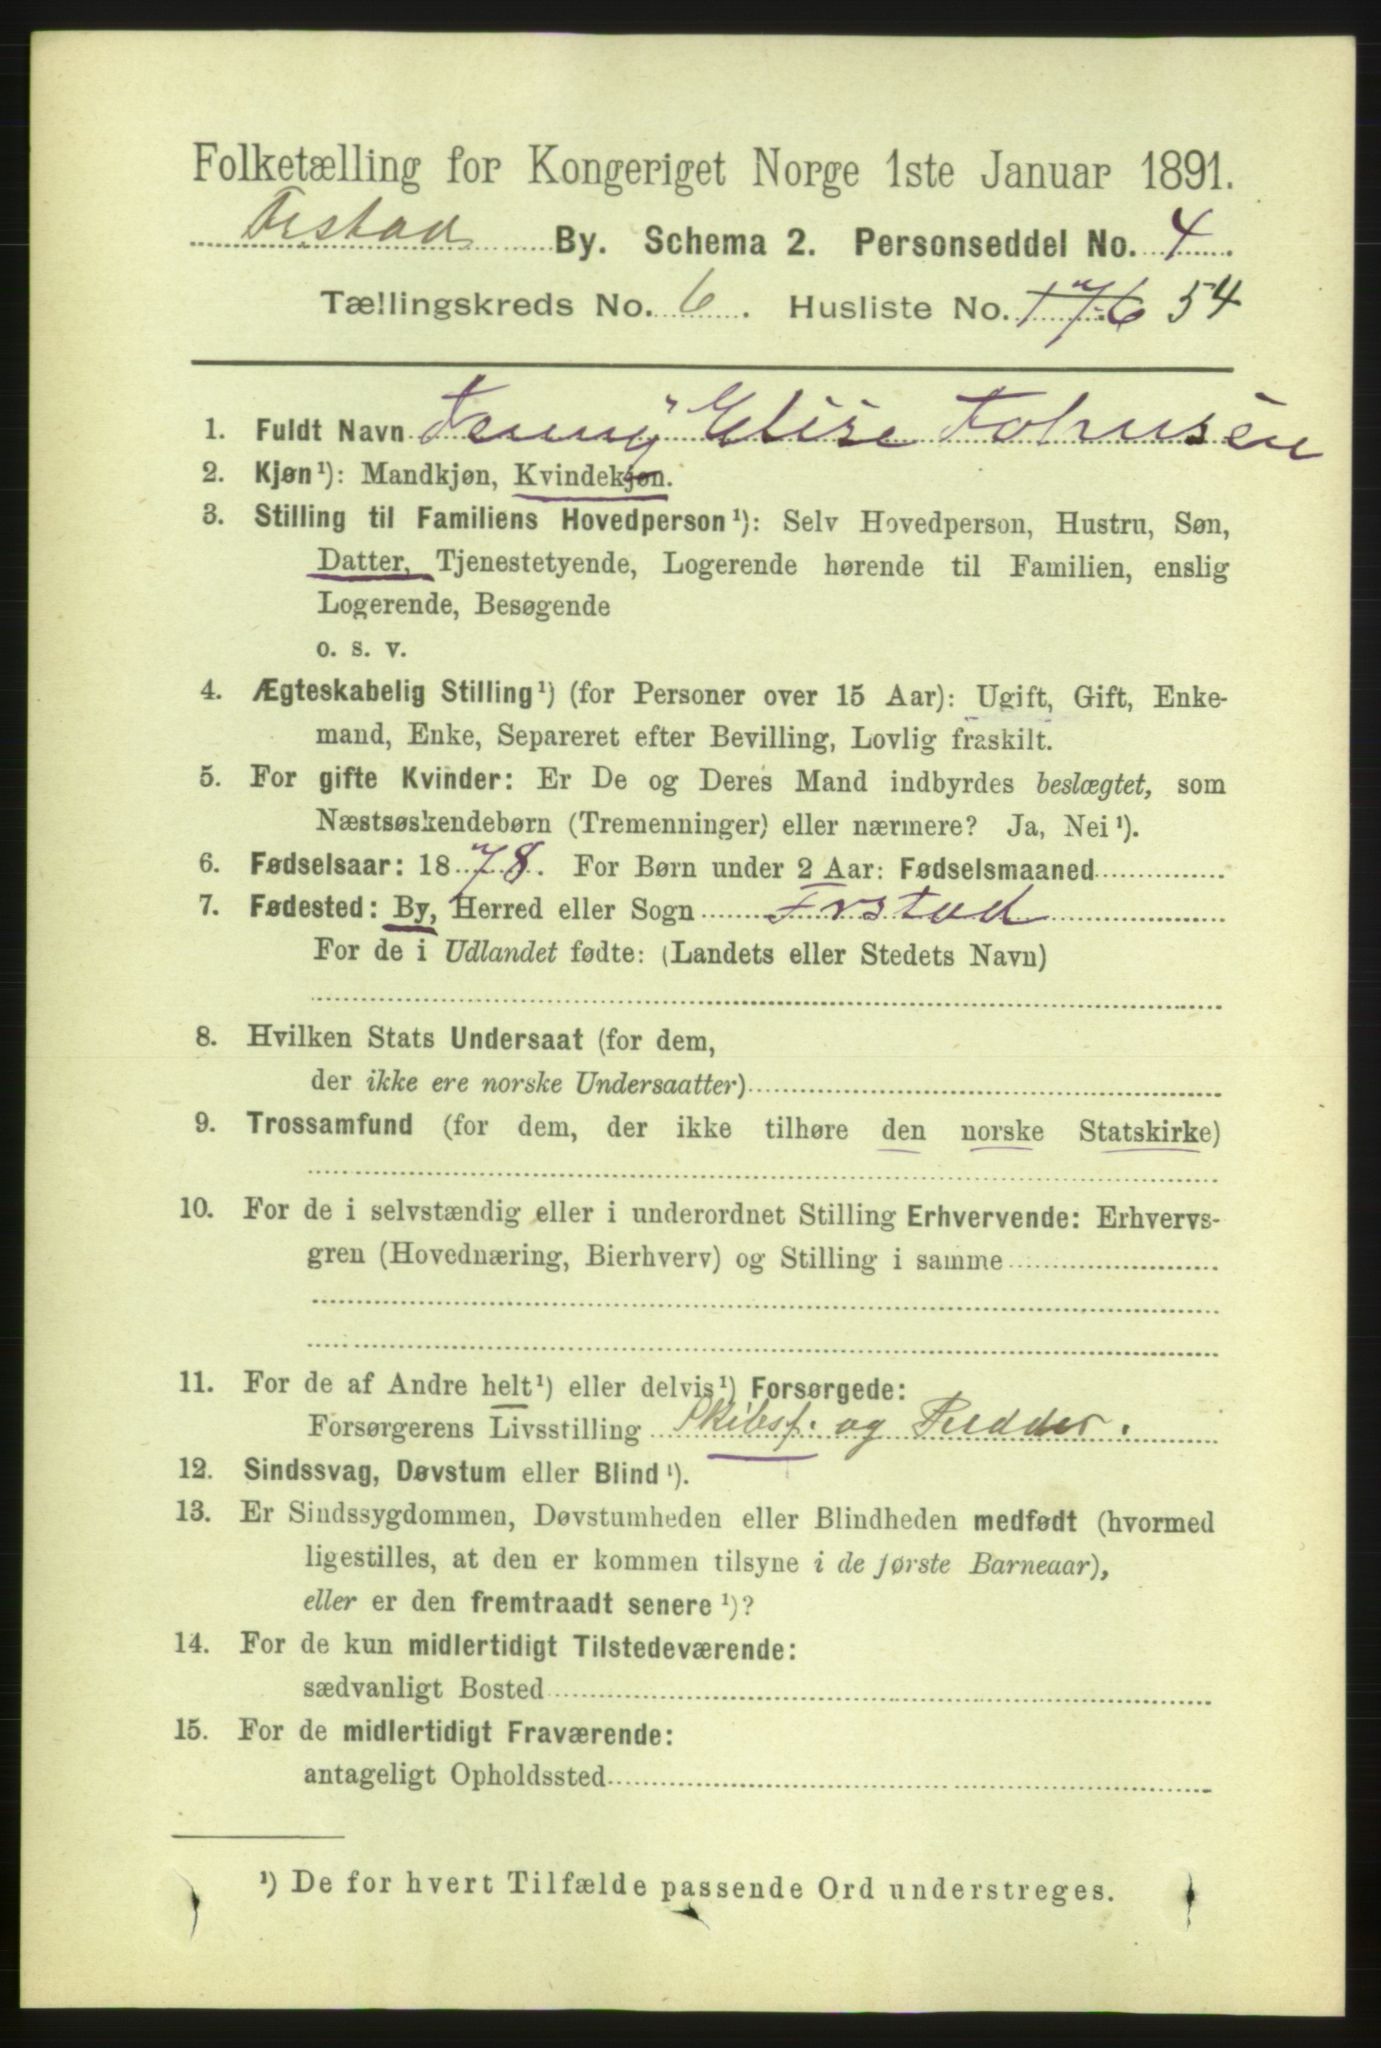 Folketælling for Kongeriget Norge 1ste Januar 1891.
By. Schema 2. Personseddel No. 4
Tællingskreds No. 6. Husliste No. 176 54
1. Fuldt Navn Jenny Elise Johnsen
2. Kjøn¹): Mandkjøn, Kvindekjøn.
3. Stilling til Familiens Hovedperson¹): Selv Hovedperson, Hustru, Søn,
Datter, Tjenestetyende, Logerende hørende til Familien, enslig
Logerende, Besøgende
o. s. v.
4. Ægteskabelig Stilling¹) (for Personer over 15 Aar): Ugift, Gift, Enke-
mand, Enke, Separeret efter Bevilling, Lovlig fraskilt.
5. For gifte Kvinder: Er De og Deres Mand indbyrdes beslægtet, som
Næstsøskendebørn (Tremenninger) eller nærmere? Ja, Nei¹).
6. Fødselsaar: 1878. For Børn under 2 Aar: Fødselsmaaned
7. Fødested: By, Herred eller Sogn Frstad
For de i Udlandet fødte: (Landets eller Stedets Navn)
8. Hvilken Stats Undersaat (for dem,
der ikke ere norske Undersaatter)
9. Trossamfund (for dem, der ikke tilhøre den norske Statskirke)
10. For de i selvstændig eller i underordnet Stilling Erhvervende: Erhvervs-
gren (Hovednæring, Bierhverv) og Stilling i samme
11. For de af Andre helt¹) eller delvis¹) Forsørgede:
Forsørgerens Livsstilling Skibsf. og Redder.
12. Sindssvag, Døvstum eller Blind¹).
13. Er Sindssygdommen, Døvstumheden eller Blindheden medfødt (hvormed
ligestilles, at den er kommen tilsyne i de første Barneaar),
eller er den fremtraadt senere¹)?
14. For de kun midlertidigt Tilstedeværende:
sædvanligt Bosted
15. For de midlertidigt Fraværende:
antageligt Opholdssted
¹) De for hvert Tilfælde passende Ord understreges.